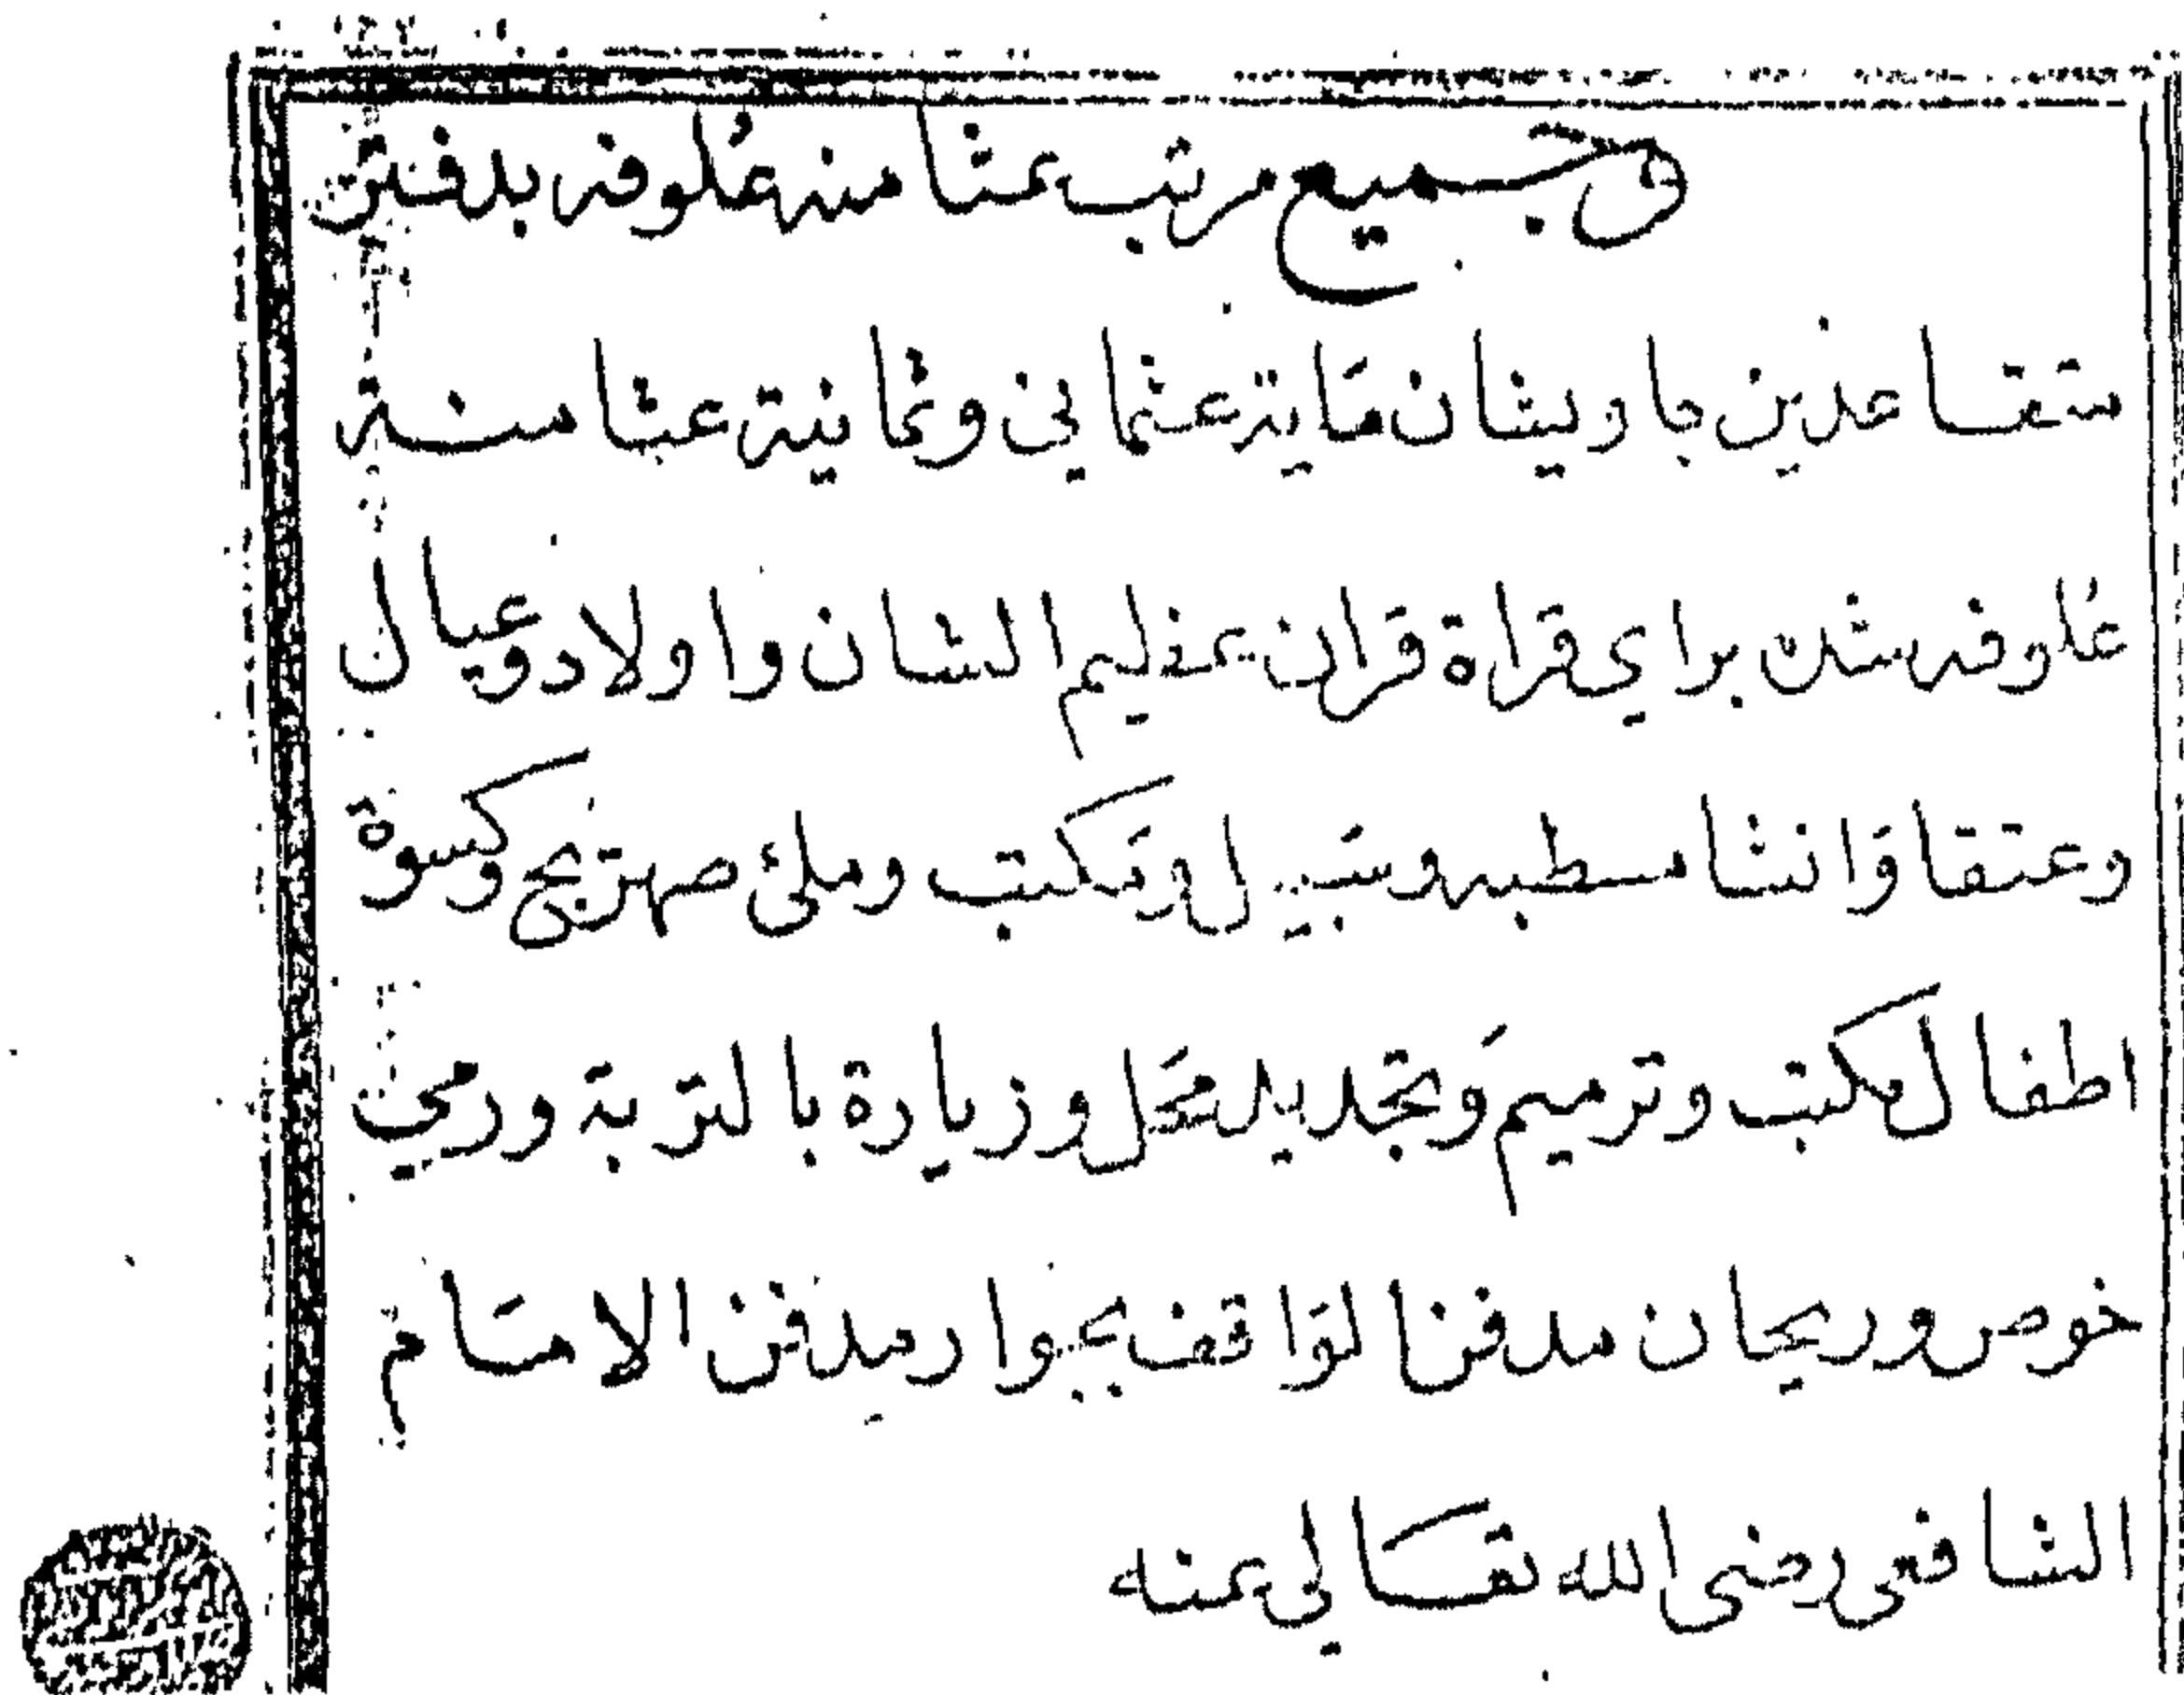 وجميع مرتب عثامنه علوفه بدفتر
متقاعدين جاويشان ماية عثماني وثمانية عثامنة
علوفه شد براي قراة قران عظيم الشان واولاد وعيال
وعتقا وانشا مسطبه وسبيل ومكتب وملئ صهريج وكسوة
اطفال مكتب وترميم وتجديد محل وزيارة بالتربة ورمي
خوص وريحان مدفن الواقف بجوار مدفن الامام
الشافعى رضى الله تعالي عنه